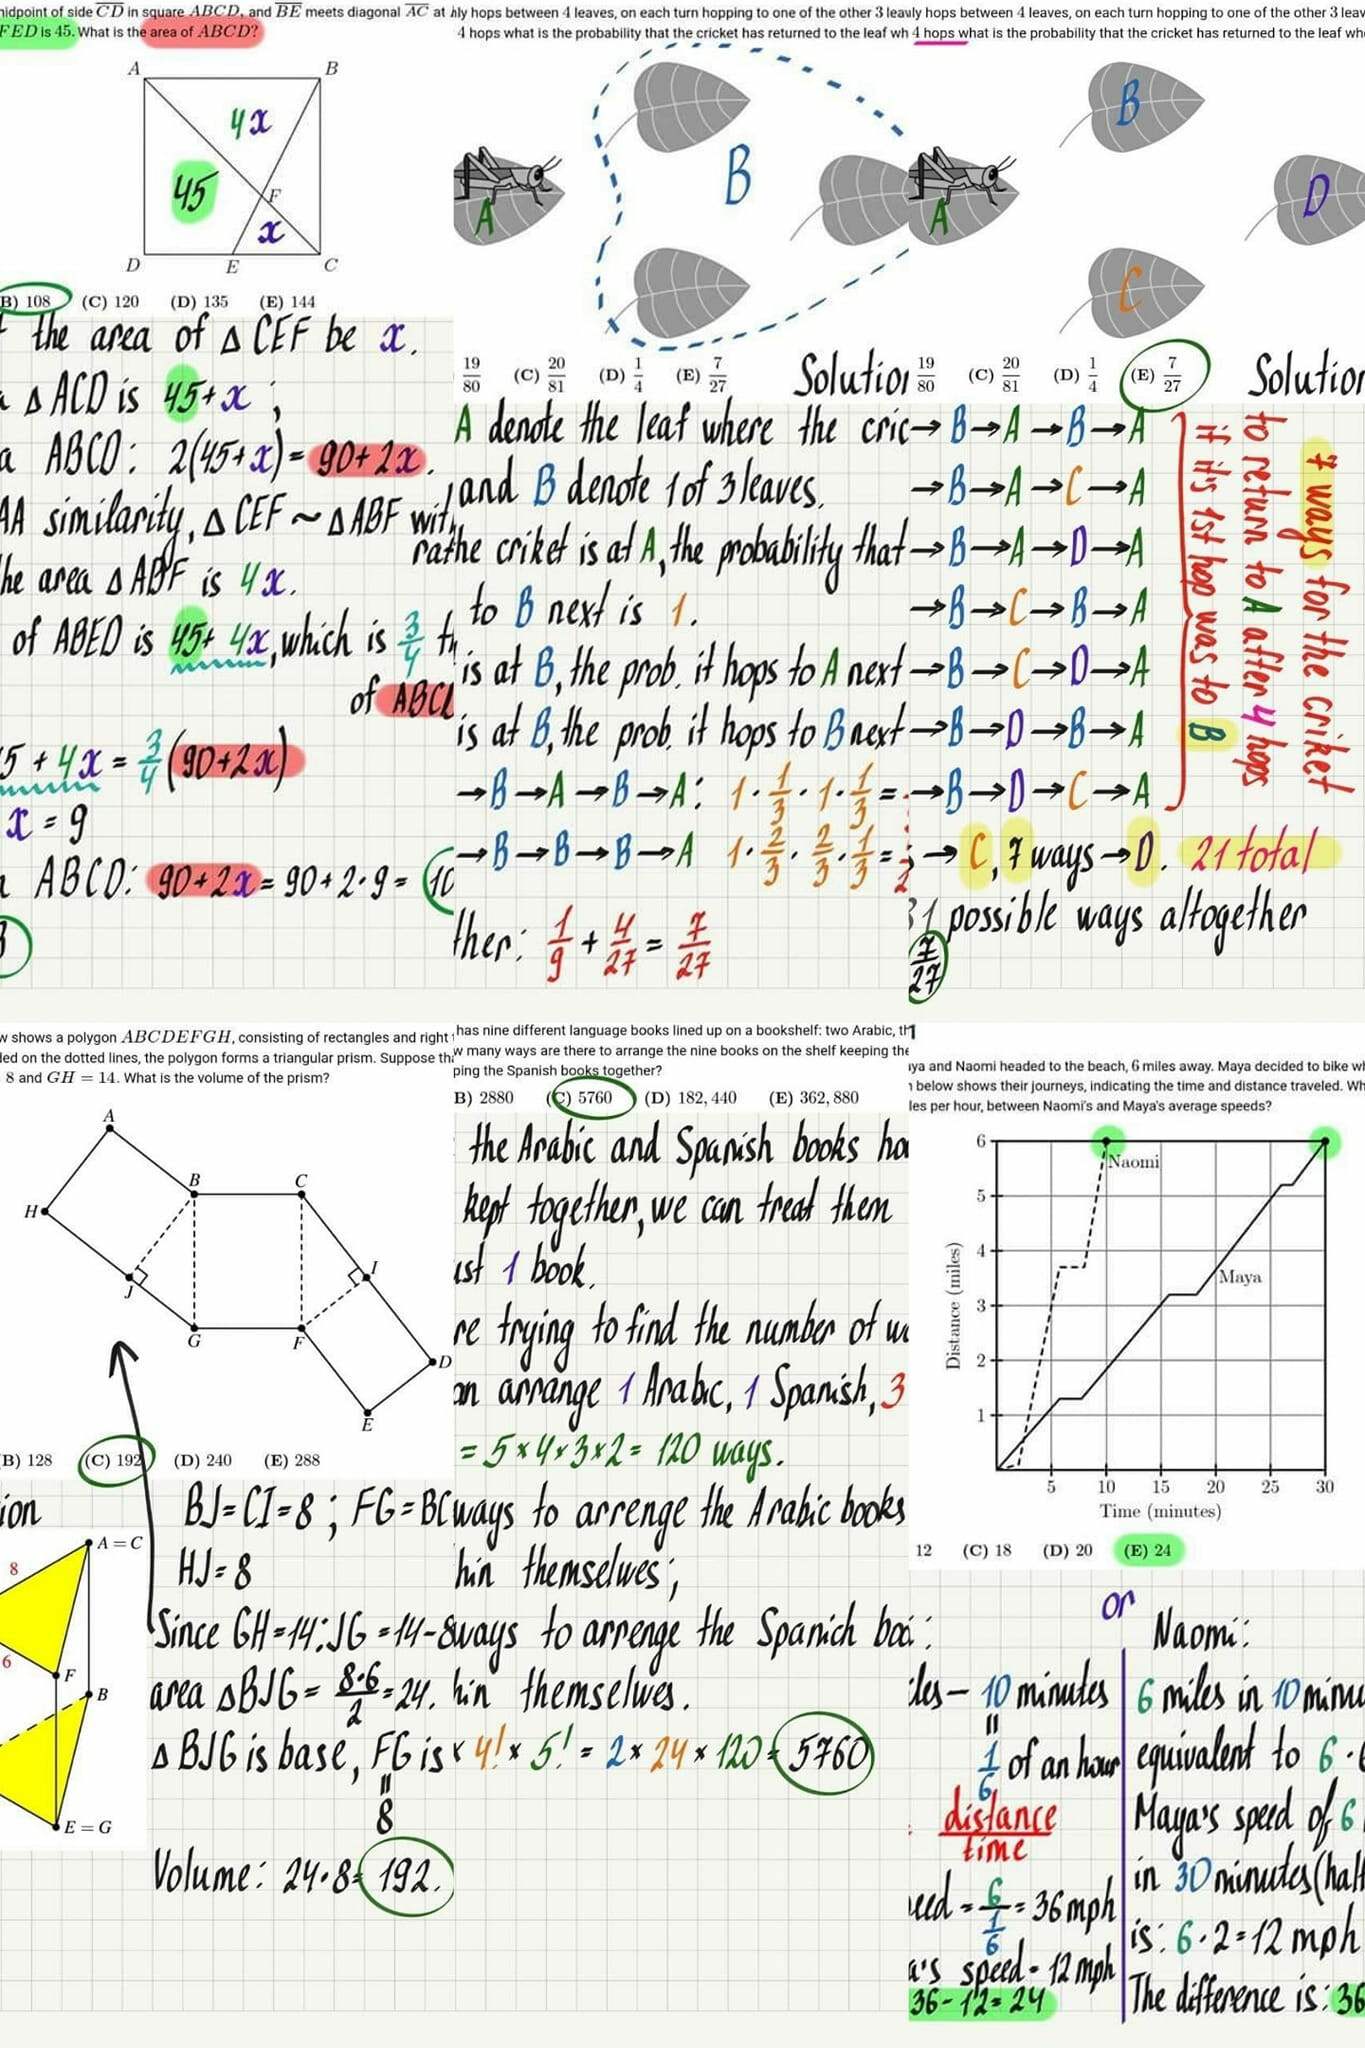 midpoint of side CD in square ABCD, and BE meets diagonal AC at
FED is 45. What is the area of ABCD?
A
B
4x
45
F
x
D
E
C
B) 108 (C) 120 (D) 135 (E) 144
the area of △ CEF be x.
△ ACD is 45+x ;
ABCD: 2(45+x) = 90+2x.
AA similarity, △ CEF ~ △ ABF wit
he area △ ABF is 4x.
of ABED is 45+ 4x, which is 3/4 th
of ABCD
5 + 4x = 3/4 (90+2x)
x = 9
ABCD: 90+2x = 90+2·9 = 10
ly hops between 4 leaves, on each turn hopping to one of the other 3 lea
4 hops what is the probability that the cricket has returned to the leaf wh
A
B
19/80 (C) 20/81 (D) 1/4 (E) 7/27
Solution
A denote the leaf where the cric
and B denote 1 of 3 leaves.
the criket is at A, the probability that
to B next is 1.
is at B, the prob. it hops to A next
is at B, the prob. it hops to B next
→ B → A → B → A: 1 · 1/3 · 1 · 1/3 =
→ B → B → B → A 1 · 2/3 · 2/3 · 1/3 =
ther: 1/9 + 4/27 = 7/27
ly hops between 4 leaves, on each turn hopping to one of the other 3 leav
4 hops what is the probability that the cricket has returned to the leaf wh
B
A
D
C
19/80 (C) 20/81 (D) 1/4 (E) 7/27
Solution
→ B → A → B → A
→ B → A → C → A
→ B → A → D → A
→ B → C → B → A
→ B → C → D → A
→ B → D → B → A
→ B → D → C → A
7 ways for the criket
to return to A after 4 hops
if it's 1st hop was to B
→ C, 7 ways → D. 21 total
possible ways altogether
7/27
w shows a polygon ABCDEFGH, consisting of rectangles and right
ed on the dotted lines, the polygon forms a triangular prism. Suppose tha
8 and GH = 14. What is the volume of the prism?
A
B
C
H
I
J
G
F
D
E
B) 128 (C) 192 (D) 240 (E) 288
ion
BJ = CI = 8 ; FG = BC
HJ = 8
Since GH = 14; JG = 14 - 8
area △BJG = 8·6/2 = 24.
△ BJG is base, FG is
8
Volume: 24·8 = 192.
8
A = C
6
F
B
E = G
has nine different language books lined up on a bookshelf: two Arabic, th
w many ways are there to arrange the nine books on the shelf keeping the
ping the Spanish books together?
B) 2880 (C) 5760 (D) 182, 440 (E) 362, 880
the Arabic and Spanish books ha
kept together, we can treat them
ust 1 book.
re trying to find the number of wa
an arrange 1 Arabic, 1 Spanish, 3
= 5 × 4 × 3 × 2 = 120 ways.
ways to arrenge the Arabic books
hin themselwes ;
ways to arrenge the Spanich boo
hin themselwes.
× 4! × 5! = 2 × 24 × 120 = 5760
1
ya and Naomi headed to the beach, 6 miles away. Maya decided to bike wh
below shows their journeys, indicating the time and distance traveled. Wh
les per hour, between Naomi's and Maya's average speeds?
6
Naomi
5
4
Maya
3
2
1
Distance (miles)
5 10 15 20 25 30
Time (minutes)
12 (C) 18 (D) 20 (E) 24
or
iles – 10 minutes
1/6 of an hour
distance
time
eed = 6 / 1/6 = 36 mph
a's speed = 12 mph
36 - 12 = 24
Naomi:
6 miles in 10 minu
equivalent to 6 · 6
Maya's speed of 6
in 30 minutes (half
is: 6 · 2 = 12 mph
The difference is: 36